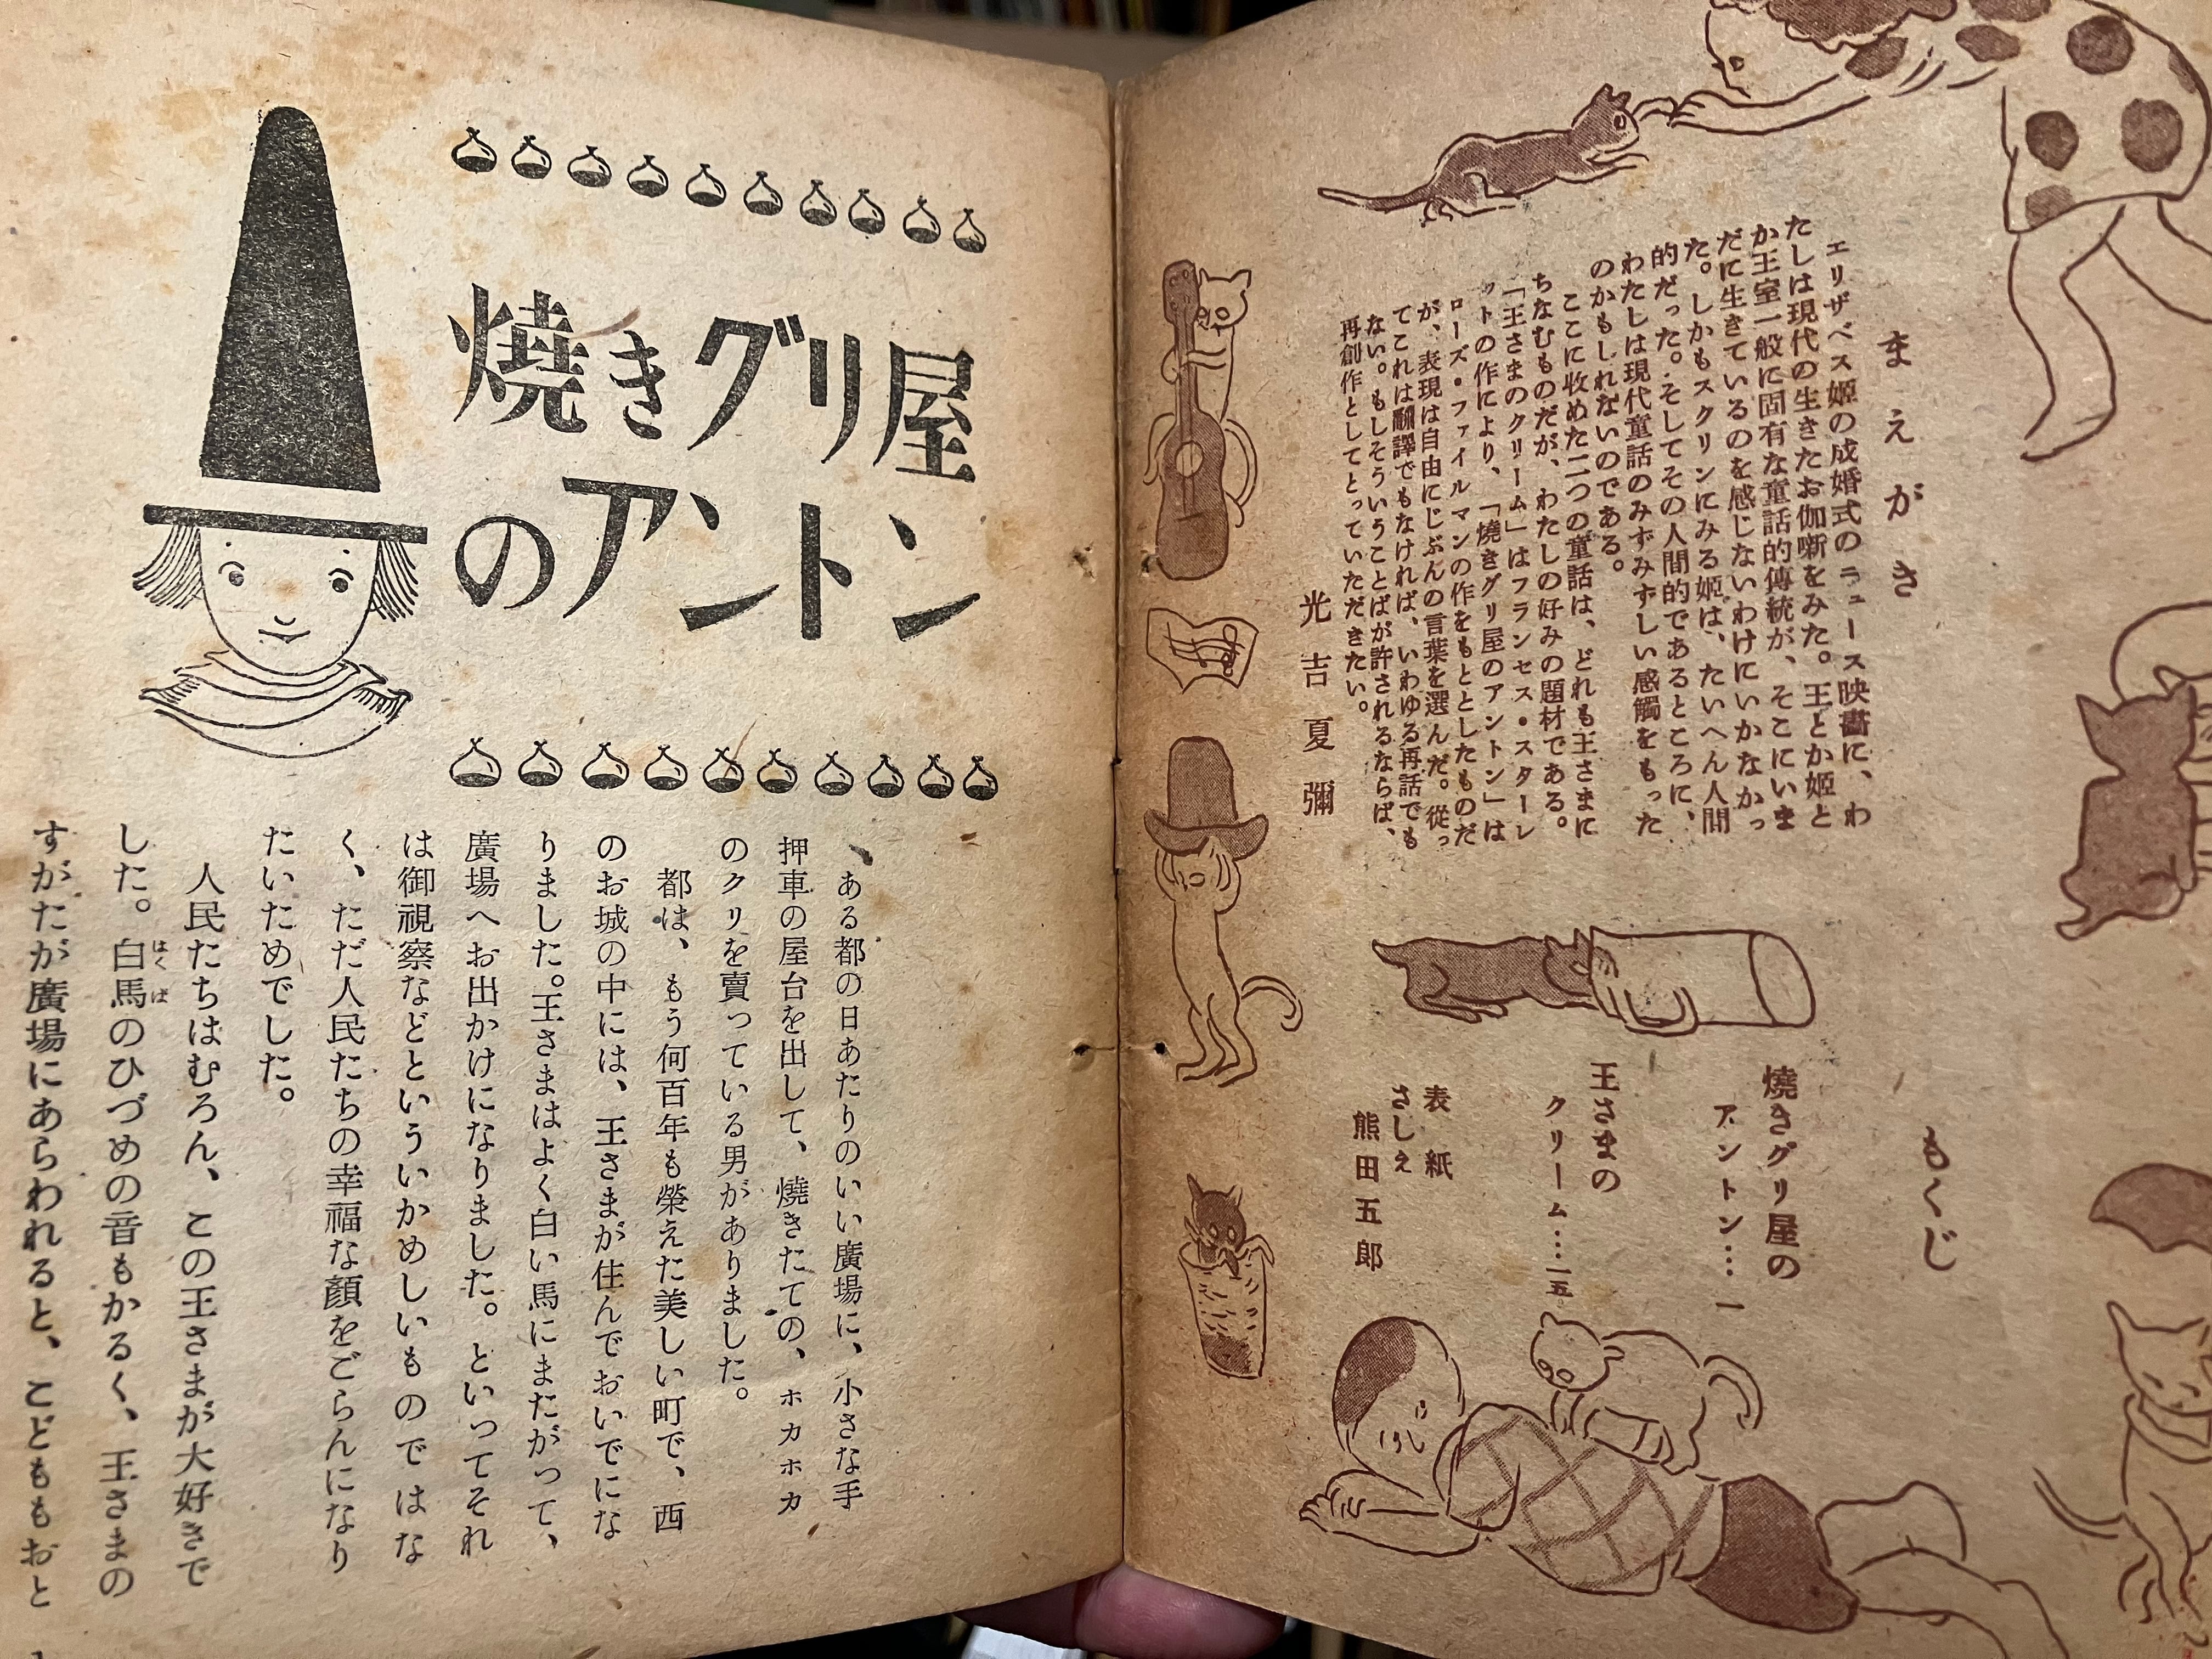 まえがき
エリザベス姫の成婚式のニュース映畫に、わ
たしは現代の生きたお伽噺をみた。王とか姫と
か王室一般に固有な童話的傳統が、そこにいま
だに生きているのを感じないわけにいかなかっ
た。しかもスクリンにみる姫は、たいへん人間
的だった。そしてその人間的であるところに、
わたしは現代童話のみずみずしい感觸をもった
のかもしれないのである。
ここに收めた二つの童話は、どれも王さまに
ちなむものだが、わたしの好みの題材である。
「王さまのクリーム」はフランセス・スターレ
ットの作により、「燒きグリ屋のアントン」は
ローズ・ファイルマンの作をもととしたものだ
が、表現は自由にじぶんの言葉を選んだ。從っ
てこれは飜譯でもなければ、いわゆる再話でも
ない。もしそういうことばが許されるならば、
再創作としてとっていただきたい。
光吉夏彌
もくじ
燒きグリ屋の
アントン…一
王さまの
クリーム…一五
表紙
さしえ
熊田五郎
燒きグリ屋
のアントン
、ある都の日あたりのいい廣場に、小さな手
押車の屋台を出して、燒きたての、ホカホカ
のクリを賣っている男がありました。
都は、もう何百年も榮えた美しい町で、西
のお城の中には、王さまが住んでおいでにな
りました。王さまはよく白い馬にまたがって、
廣場へお出かけになりました。といってそれ
は御視察などといういかめしいものではな
く、ただ人民たちの幸福な顏をごらんになり
たいためでした。
人民たちはむろん、この王さまが大好きで
した。白馬のひづめの音もかるく、王さまの
はくば
すがたが廣場にあらわれると、こどももおと